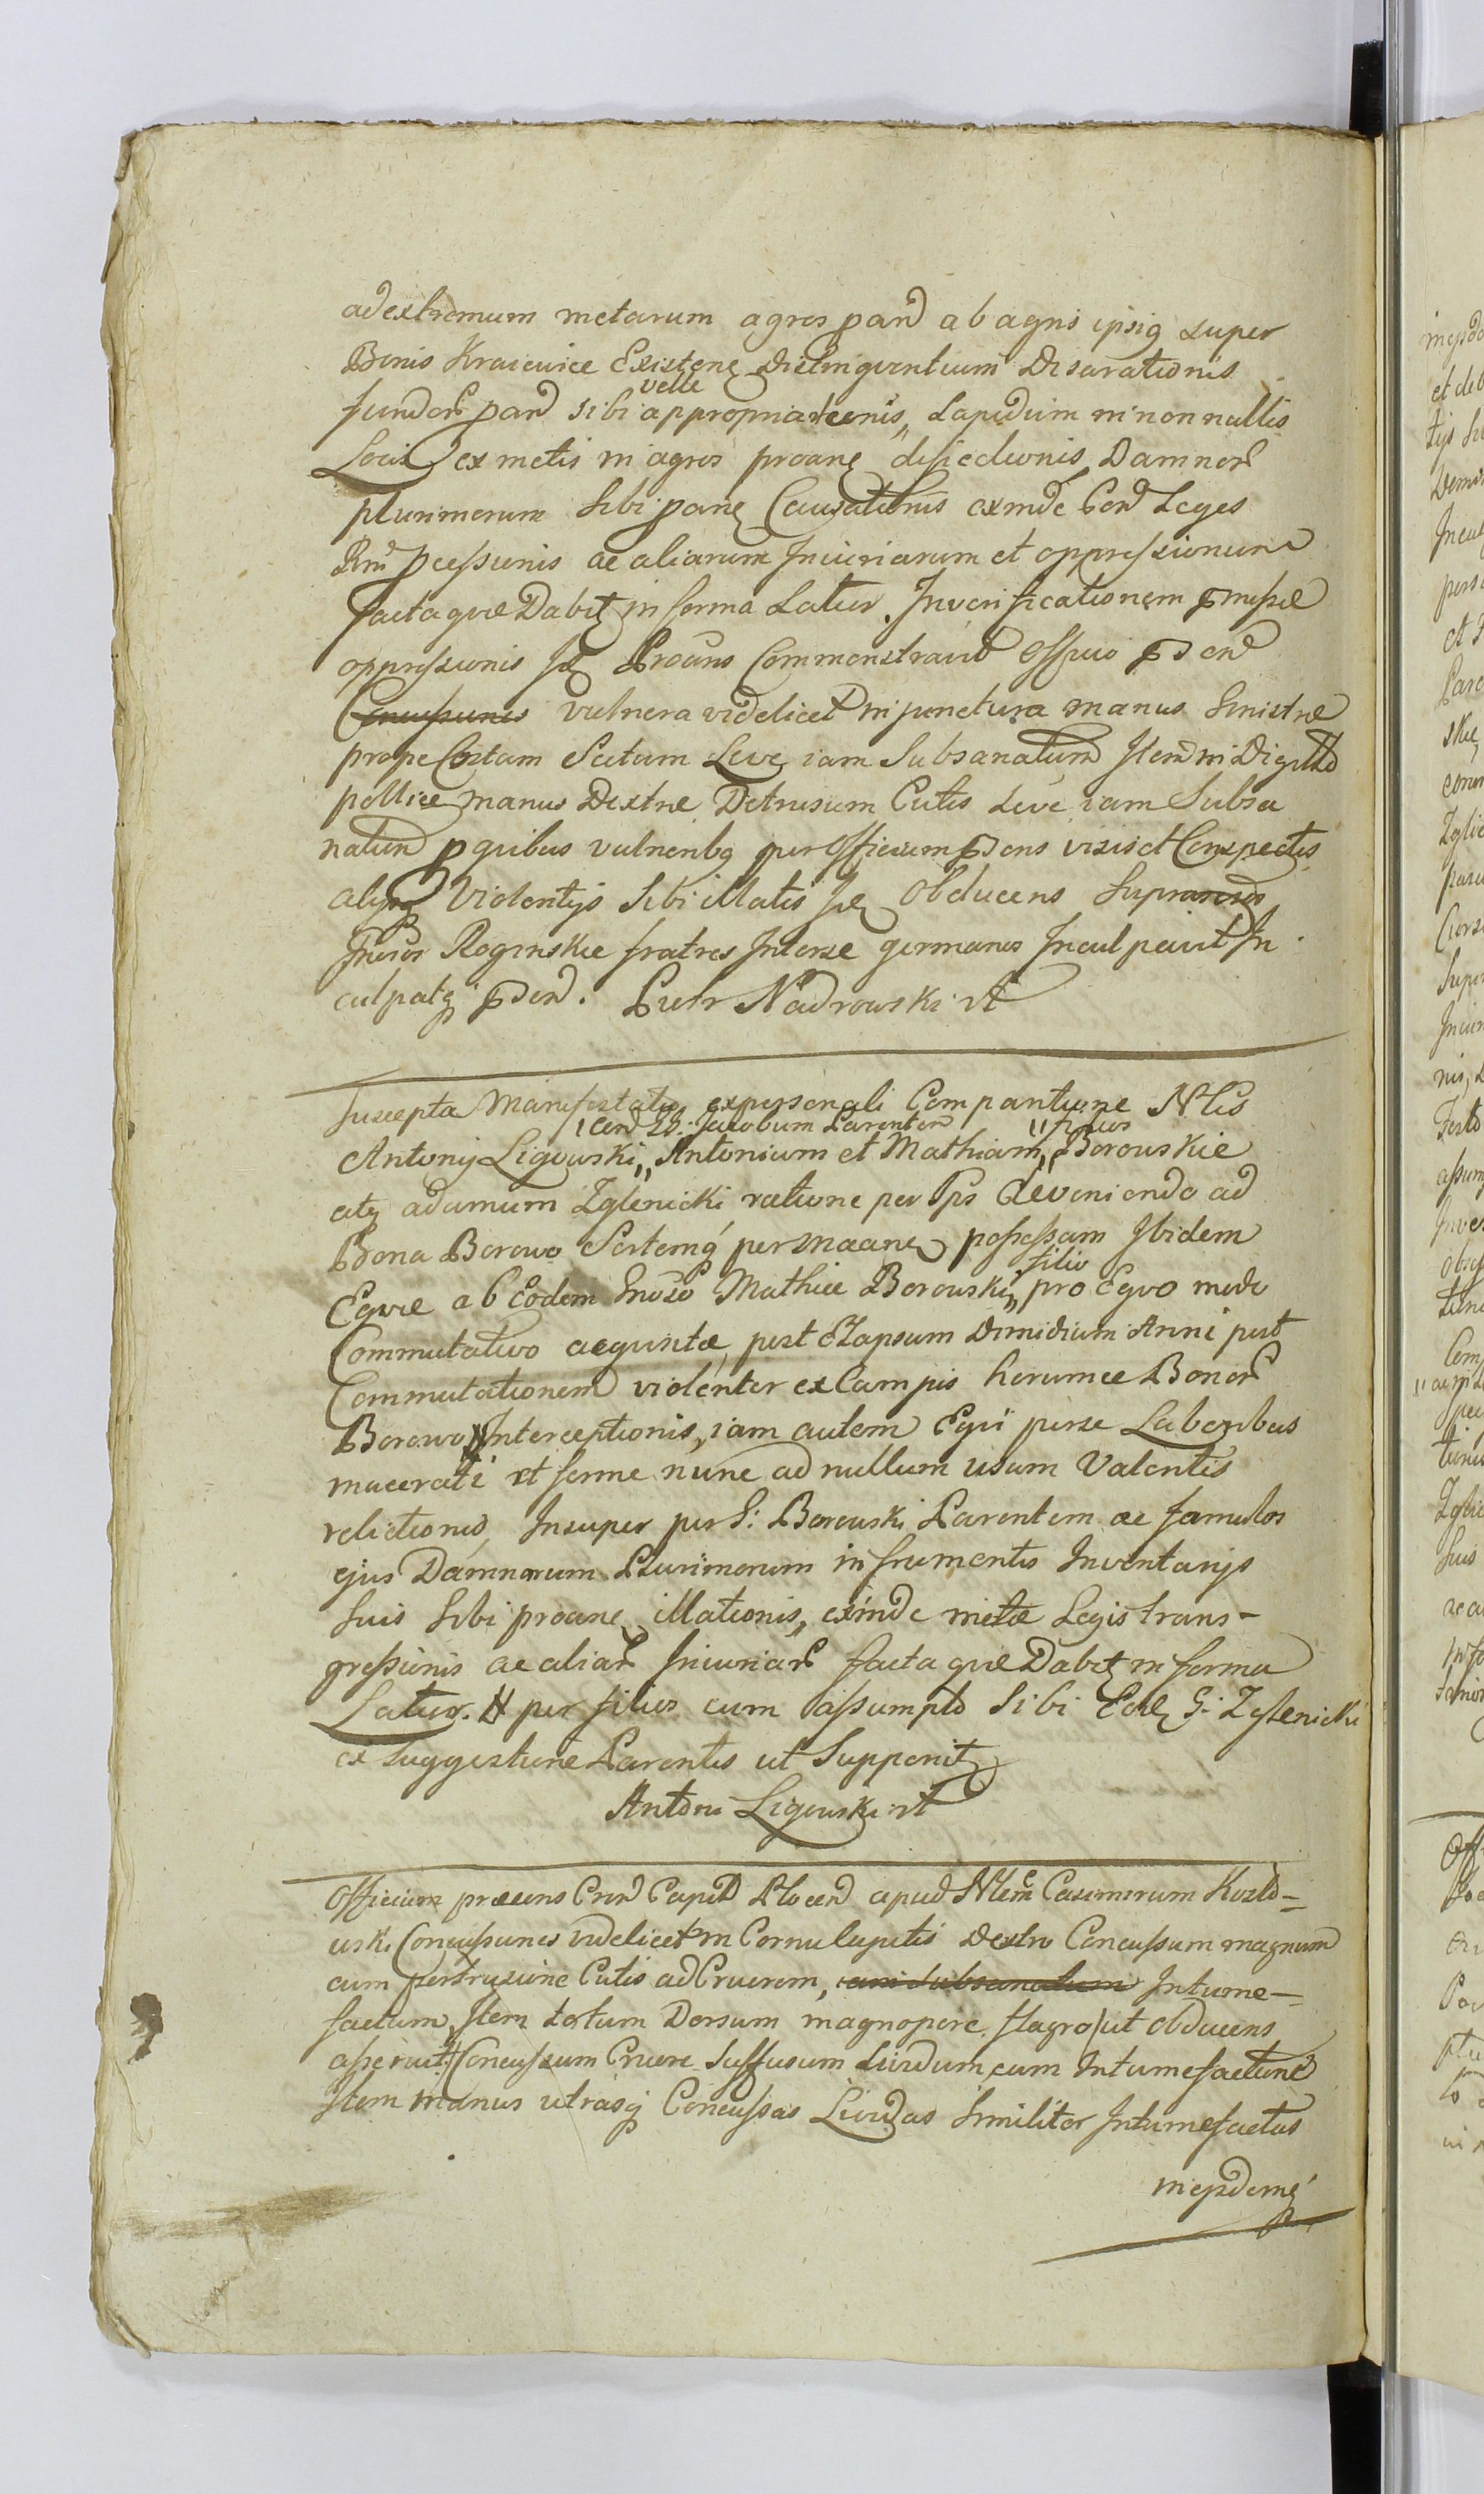 ad extremum metarum agros pand ab agris ipsiq super
Bonis Kraiewice Existenc Distingventium Disarationis
velle
fundor pand sibi appropriationis, Lapidum in non nullis
Locis ex metis in agros proane disiectionis Damnor
plurimorum Sibi pane Causationis exinde Leges
pcessionis ac aliarum Iniuriarum et oppressionum
facta quæ Dabit in forma Latior. In verificationem pmissæ
oppressionis Proans Commonstravit Officio pndi
Concussiones vulnera videlicet in junctura manus Sinistræ
prope Costam Sectum Leve iam Subsanatum Item in Digitto
pollice manus Dextræ Detrusum Cutis Leve iam Subsa
natum p quibus vulneribq per Officium pdens visis et Conspectis
alysq Violentijs Sibi illatis Obducens
Roginskie fratres Interse germanos Inculpavit In
culpatq pdend. Piotr Nadrowski
Suscepta Manifestatio ex personali Comparitione Nlis
Jacobum Parentem filios
Antonij Ligowski Antonium et Mathiam Borowskie
atq adamum Zglenicki ratione per Deveniendo ad
Bona Borowo Sortemq per Maane possessam Ibidem
filio
Eqvæ ab Eodem Gnoso Mathia Borowski pro Eqvo modo
Commutativo aeqvisitæ, post Elapsum Dimidium Anni post
Commutationem violenter ex Campis horumce Bonor
Borowo Interceptionis, iam autem Eqvi Laboribus
macerati et ferme nunc ad nullum usum Valentis
relictionis, Insuper per G: Borowski Parentem ac famulos
ejus Damnorum Plurimorum in frumentis Inventarijs
Suis Sibi proane illationis, exinde metæ Legis trans-
gressionis ac aliar Iniuriar facta quæ Dabit in forma
Latior. per filios cum assumpto Sibi G: Zglenicki
ex Suggestione Parentis ut Supponit
Antoni Ligowski
Officium præsens Capit Plocen apud Casimirum Kozło-
wski Concussiones videlicet in Cornu Capitis Dextro Concussum magnum
cum perstryxione Cutis ad Cruorem, iam Subsanatum Intume-
factum, Item totum Dorsum magnopere flagro ut obducens
asseruit Concussum Cruore Suffusum Lividum cum Intumefactione
Item manus utrasq Concussas Lividas Similiter Intumefactas
inejsdemq